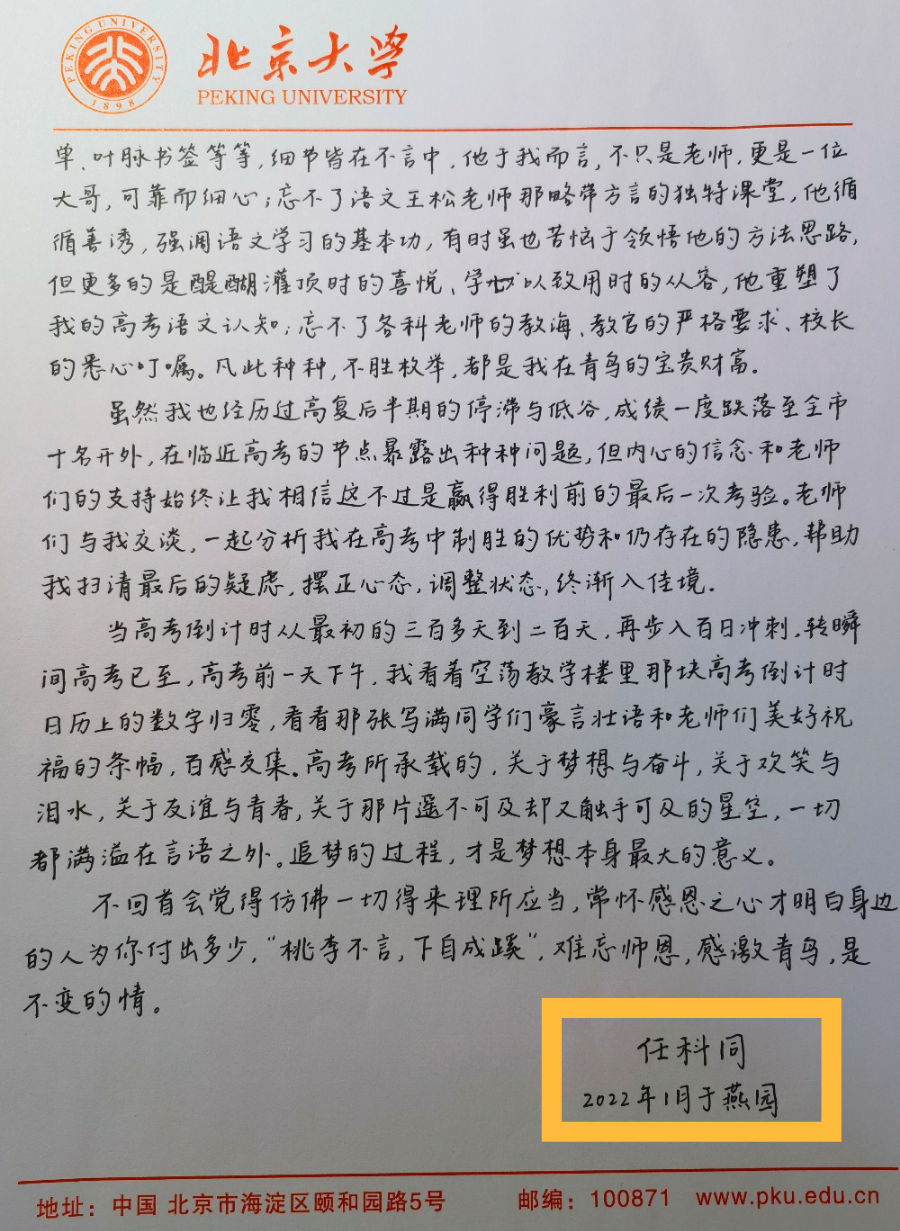 PEKING UNIVERSITY
1898
北京大学
PEKING UNIVERSITY
单、叶脉书签等等，细节皆在不言中，他于我而言，不只是老师，更是一位
大哥，可靠而细心；忘不了语文王松老师那略带方言的独特课堂，他循
循善诱，强调语文学习的基本功，有时虽也苦恼于领悟他的方法思路，
但更多的是醍醐灌顶时的喜悦、学以致用时的从容，他重塑了
我的高考语文认知；忘不了各科老师的教诲、教官的严格要求、校长
的悉心叮嘱。凡此种种，不胜枚举，都是我在青鸟的宝贵财富。
虽然我也经历过高复后半期的停滞与低谷，成绩一度跌落至全市
十名开外，在临近高考的节点暴露出种种问题，但内心的信念和老师
们的支持始终让我相信这不过是赢得胜利前的最后一次考验。老师
们与我交谈，一起分析我在高考中制胜的优势和仍存在的隐患，帮助
我扫清最后的疑虑，摆正心态，调整状态，终渐入佳境。
当高考倒计时从最初的三百多天到二百天，再步入百日冲刺，转瞬
间高考已至，高考前一天下午，我看着空荡教学楼里那块高考倒计时
日历上的数字归零，看看那张写满同学们豪言壮语和老师们美好祝
福的条幅，百感交集。高考所承载的，关于梦想与奋斗，关于欢笑与
泪水，关于友谊与青春，关于那片遥不可及却又触手可及的星空，一切
都满溢在言语之外。追梦的过程，才是梦想本身最大的意义。
不回首会觉得仿佛一切得来理所应当，常怀感恩之心才明白身边
的人为你付出多少，“桃李不言，下自成蹊”，难忘师恩，感激青鸟，是
不变的情。
任科同
2022年1月于燕园
地址：中国 北京市海淀区颐和园路5号 邮编：100871 www.pku.edu.cn